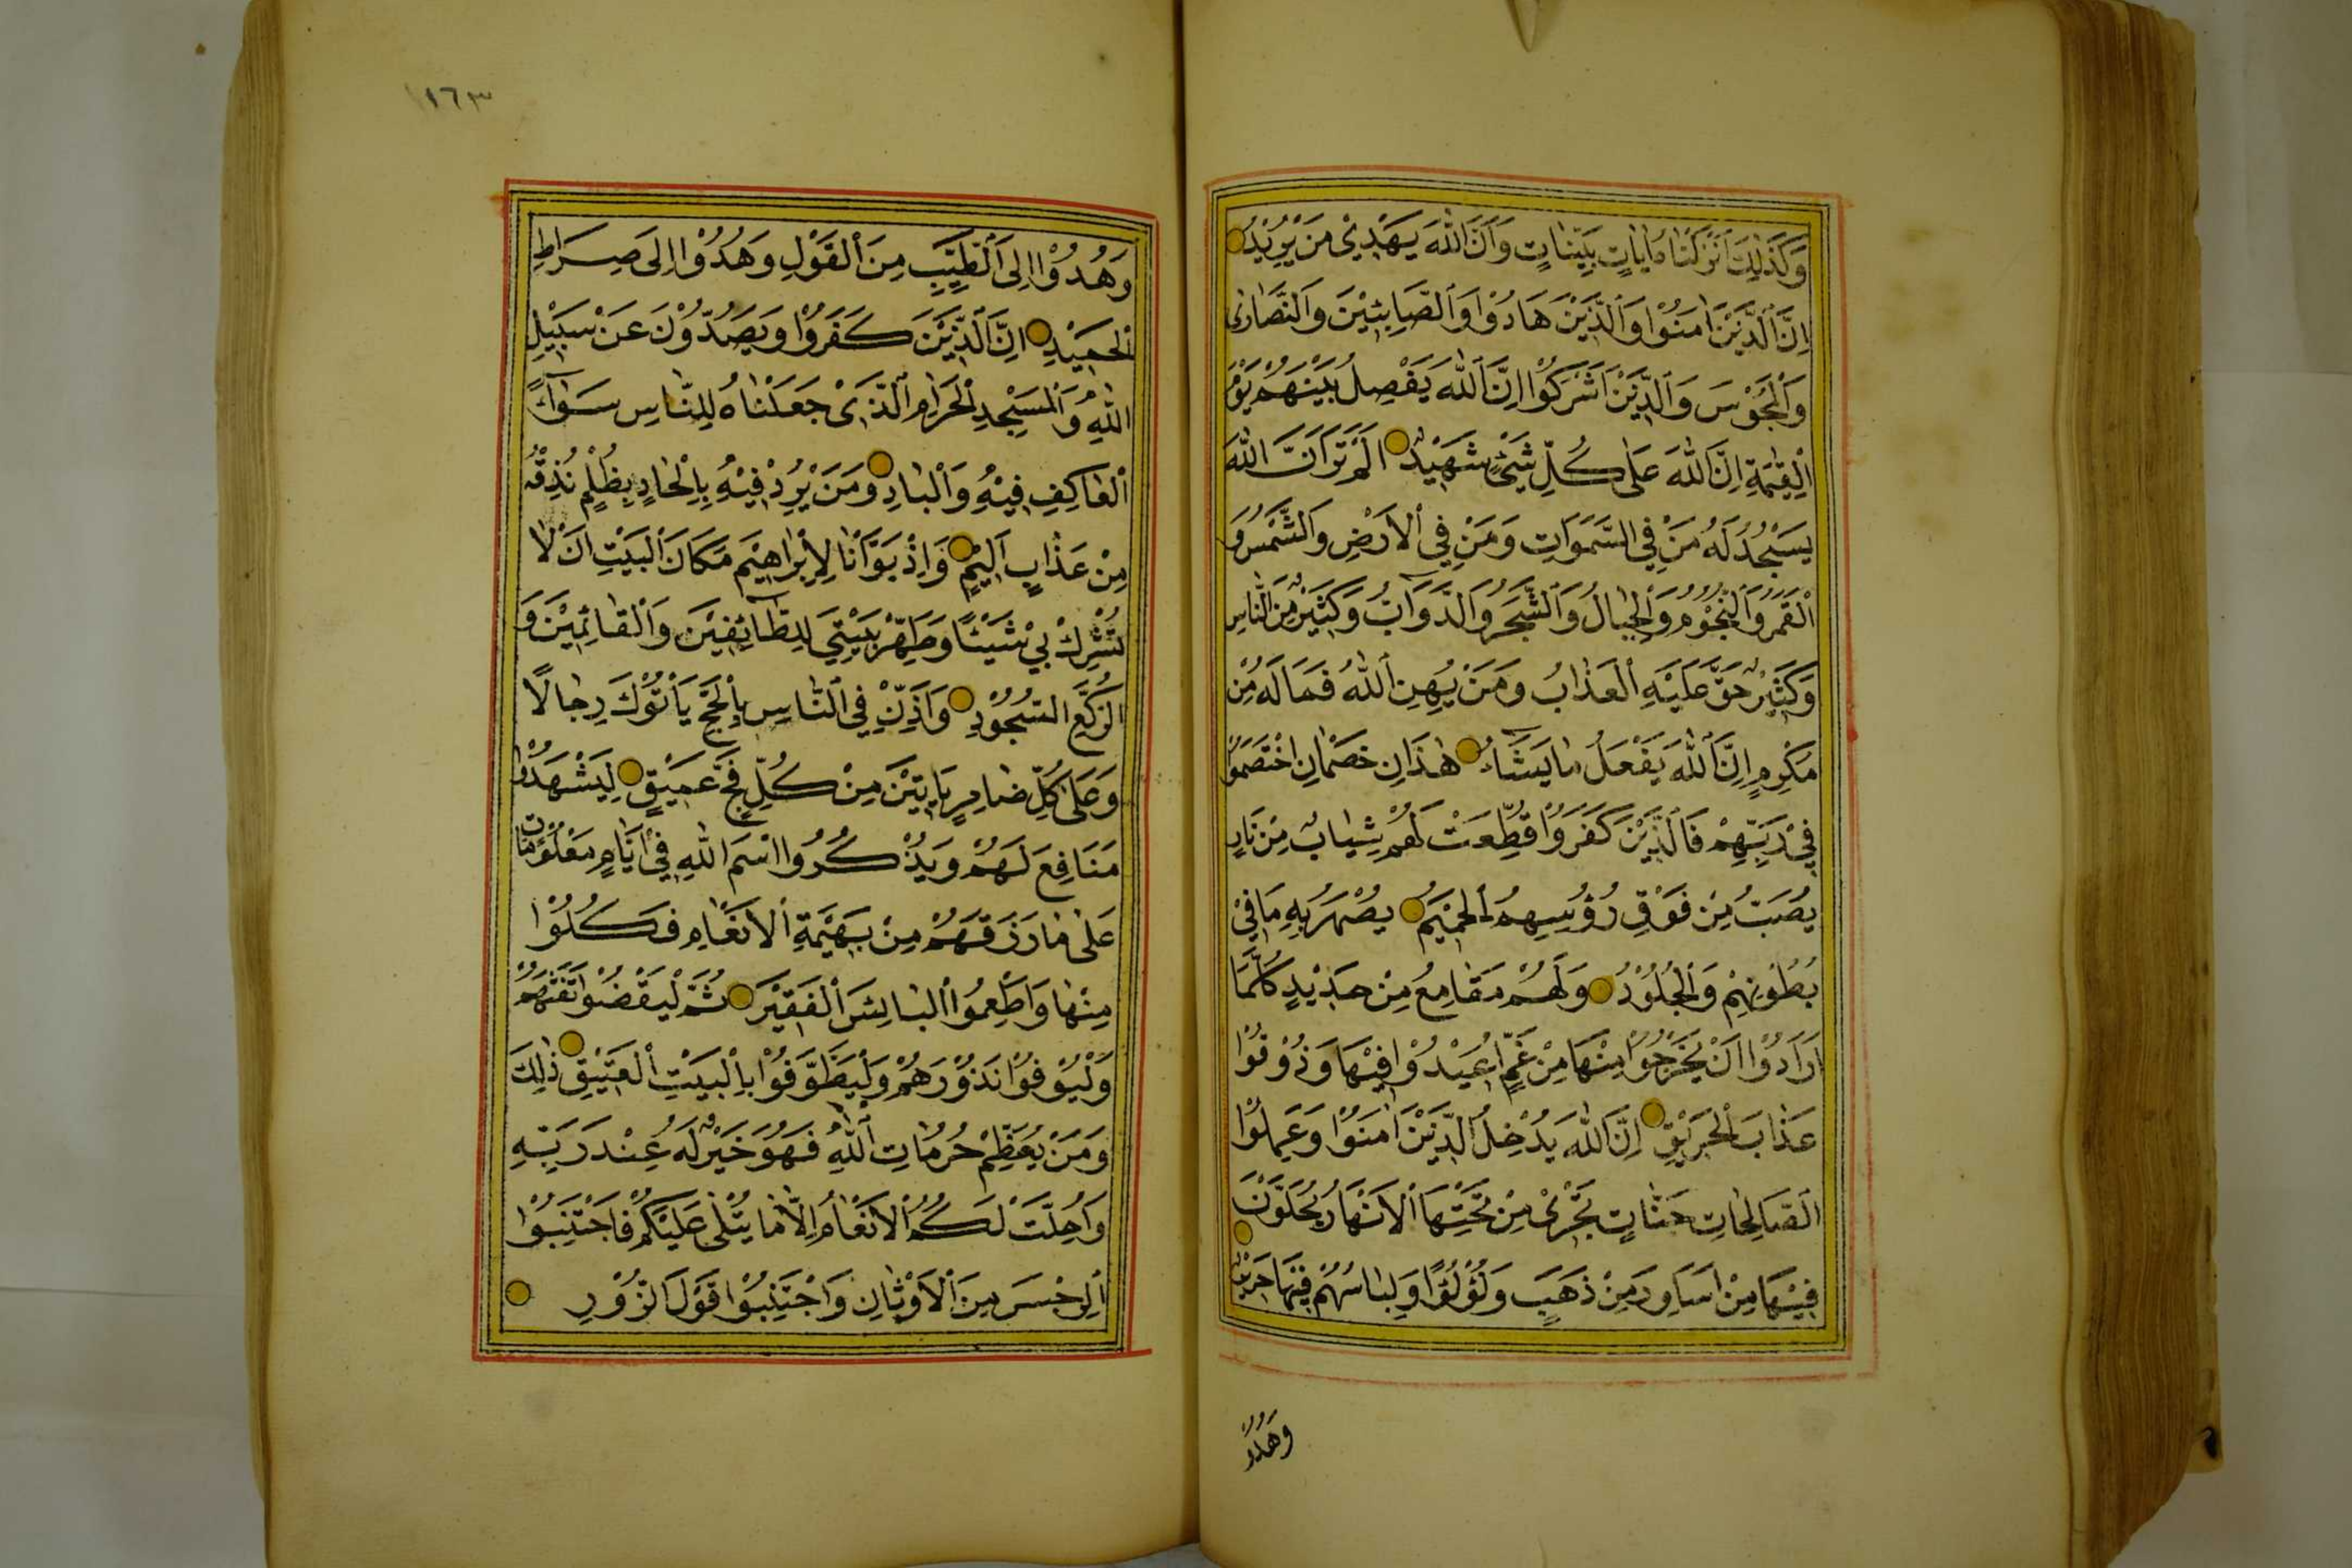 وَكَذٰلِكَ اَنْزَلْنَاهُ اٰيَاتٍ بَيِّنَاتٍ وَاَنَّ اللّٰهَ يَهْدِيْ مَنْ يُرِيْدُ
اِنَّ الَّذِيْنَ اٰمَنُوْا وَالَّذِيْنَ هَادُوْا وَالصَّابِئِيْنَ وَالنَّصَارٰى
وَالْمَجُوْسَ وَالَّذِيْنَ اَشْرَكُوْا اِنَّ اللّٰهَ يَفْصِلُ بَيْنَهُمْ يَوْمَ
الْقِيٰمَةِ اِنَّ اللّٰهَ عَلٰى كُلِّ شَيْءٍ شَهِيْدٌ اَلَمْ تَرَ اَنَّ اللّٰهَ
يَسْجُدُ لَهُ مَنْ فِي السَّمٰوَاتِ وَمَنْ فِي الْاَرْضِ وَالشَّمْسُ وَ
الْقَمَرُ وَالنُّجُوْمُ وَالْجِبَالُ وَالشَّجَرُ وَالدَّوَآبُّ وَكَثِيْرٌ مِنَ النَّاسِ
وَكَثِيْرٌ حَقَّ عَلَيْهِ الْعَذَابُ وَمَنْ يُهِنِ اللّٰهُ فَمَا لَهُ مِنْ
مُكْرِمٍ اِنَّ اللّٰهَ يَفْعَلُ مَا يَشَآءُ هٰذَانِ خَصْمَانِ اخْتَصَمُوْا
فِيْ رَبِّهِمْ فَالَّذِيْنَ كَفَرُوْا قُطِّعَتْ لَهُمْ ثِيَابٌ مِنْ نَارٍ
يُصَبُّ مِنْ فَوْقِ رُؤُسِهِمُ الْحَمِيْمُ يُصْهَرُ بِهِ مَا فِيْ
بُطُوْنِهِمْ وَالْجُلُوْدُ وَلَهُمْ مَقَامِعُ مِنْ حَدِيْدٍ كُلَّمَا
اَرَادُوْا اَنْ يَخْرُجُوْا مِنْهَا مِنْ غَمٍّ اُعِيْدُوْا فِيْهَا وَذُوْقُوْا
عَذَابَ الْحَرِيْقِ اِنَّ اللّٰهَ يُدْخِلُ الَّذِيْنَ اٰمَنُوْا وَعَمِلُوْا
الصَّالِحَاتِ جَنَّاتٍ تَجْرِيْ مِنْ تَحْتِهَا الْاَنْهَارُ يُحَلَّوْنَ
فِيْهَا مِنْ اَسَاوِرَ مِنْ ذَهَبٍ وَلُؤْلُؤًا وَلِبَاسُهُمْ فِيْهَا حَرِيْرٌ
وَهُدُوْا
١٦٣
وَهُدُوْا اِلَى الطَّيِّبِ مِنَ الْقَوْلِ وَهُدُوْا اِلٰى صِرَاطِ
الْحَمِيْدِ اِنَّ الَّذِيْنَ كَفَرُوْا وَيَصُدُّوْنَ عَنْ سَبِيْلِ
اللّٰهِ وَالْمَسْجِدِ الْحَرَامِ الَّذِيْ جَعَلْنَاهُ لِلنَّاسِ سَوَآءً
الْعَاكِفِ فِيْهِ وَالْبَادِ وَمَنْ يُرِدْ فِيْهِ بِاِلْحَادٍ بِظُلْمٍ نُذِقْهُ
مِنْ عَذَابٍ اَلِيْمٍ وَاِذْ بَوَّاْنَا لِاِبْرَاهِيْمَ مَكَانَ الْبَيْتِ اَنْ لَا
تُشْرِكْ بِيْ شَيْئًا وَطَهِّرْ بَيْتِيَ لِلطَّآئِفِيْنَ وَالْقَائِمِيْنَ وَ
الرُّكَّعِ السُّجُوْدِ وَاَذِّنْ فِي النَّاسِ بِالْحَجِّ يَاْتُوْكَ رِجَالًا
وَعَلٰى كُلِّ ضَامِرٍ يَاْتِيْنَ مِنْ كُلِّ فَجٍّ عَمِيْقٍ لِيَشْهَدُوْا
مَنَافِعَ لَهُمْ وَيَذْكُرُوا اسْمَ اللّٰهِ فِيْ اَيَّامٍ مَعْلُوْمَاتٍ
عَلٰى مَا رَزَقَهُمْ مِنْ بَهِيْمَةِ الْاَنْعَامِ فَكُلُوْا
مِنْهَا وَاَطْعِمُوا الْبَائِسَ الْفَقِيْرَ ثُمَّ لْيَقْضُوْا تَفَثَهُمْ
وَلْيُوْفُوْا نُذُوْرَهُمْ وَلْيَطَّوَّفُوْا بِالْبَيْتِ الْعَتِيْقِ ذٰلِكَ
وَمَنْ يُعَظِّمْ حُرُمَاتِ اللّٰهِ فَهُوَ خَيْرٌ لَهُ عِنْدَ رَبِّهِ
وَاُحِلَّتْ لَكُمُ الْاَنْعَامُ اِلَّا مَا يُتْلٰى عَلَيْكُمْ فَاجْتَنِبُوْا
الرِّجْسَ مِنَ الْاَوْثَانِ وَاجْتَنِبُوْا قَوْلَ الزُّوْرِ